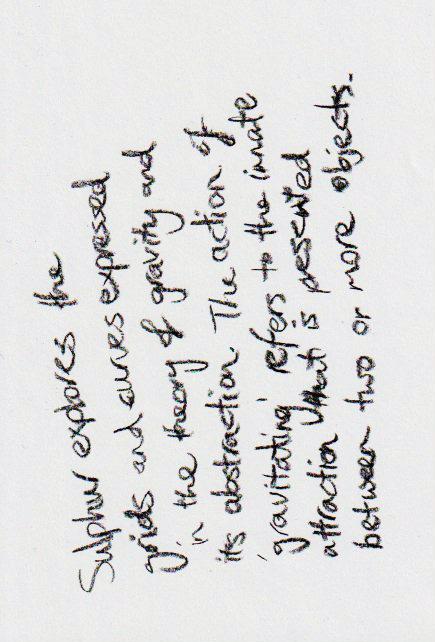 Sulphur explores the
grids and curves expressed
in the theory of gravity and
its abstraction. The action of
'gravitating' refers to the innate
attraction that is presented
between two or more objects.